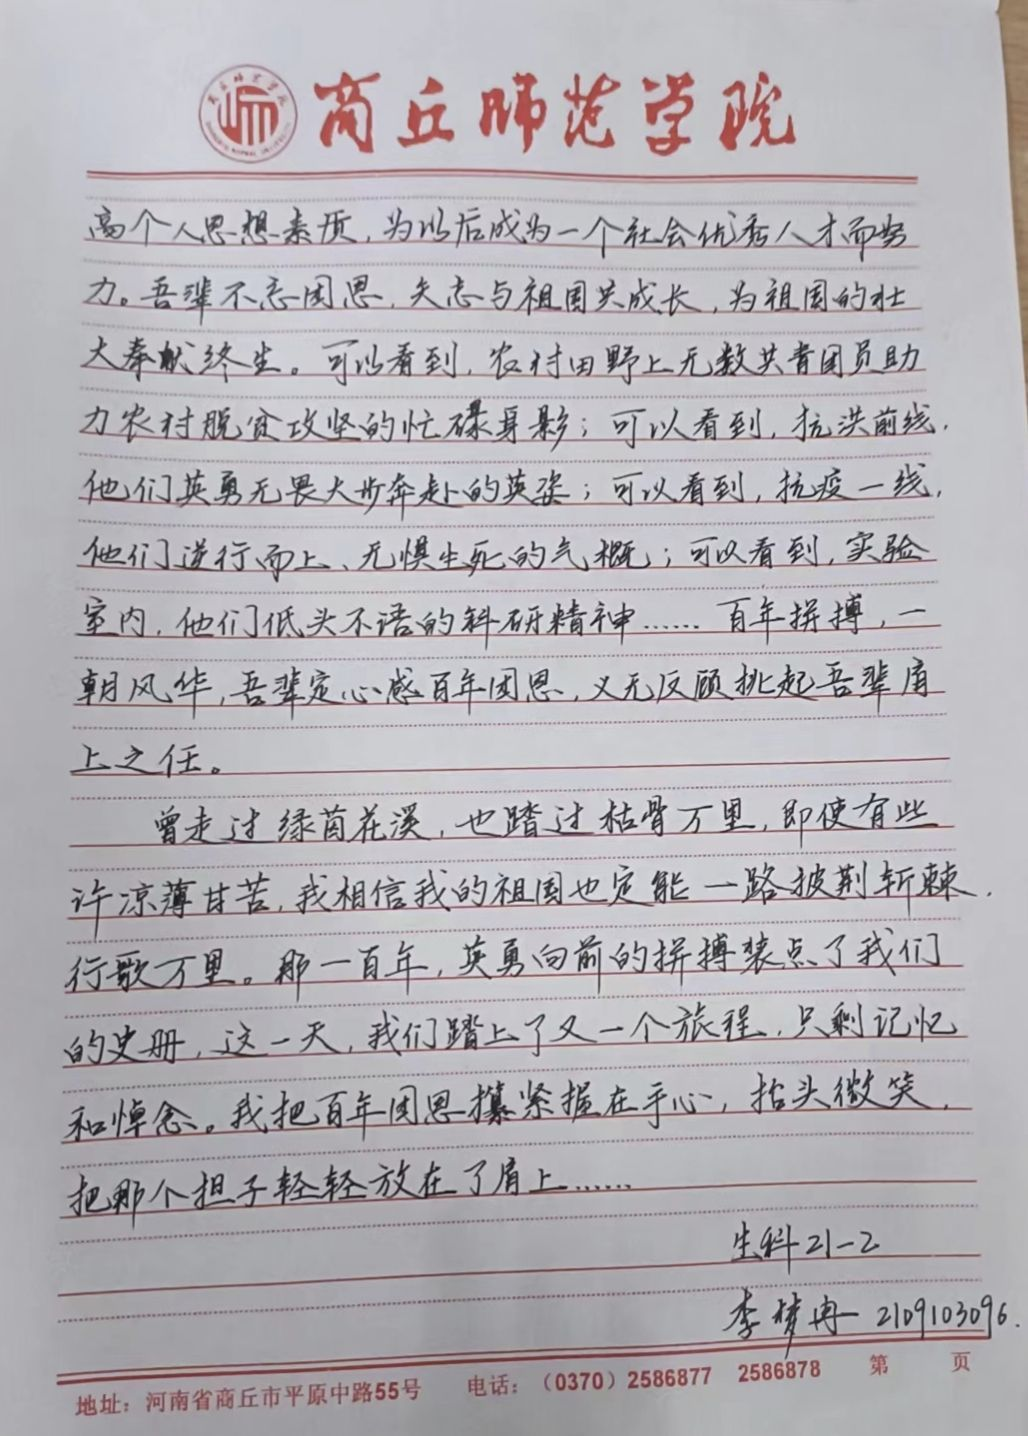 商丘师范学院
高个人思想素质，为以后成为一个社会优秀人才而努
力。吾辈不忘团恩，矢志与祖国共成长，为祖国的壮
大奉献终生。可以看到，农村田野上无数共青团员助
力农村脱贫攻坚的忙碌身影；可以看到，抗洪前线，
他们英勇无畏大步奔赴的英姿；可以看到，抗疫一线，
他们逆行而上、无惧生死的气概；可以看到，实验
室内，他们低头不语的科研精神……百年拼搏，一
朝风华，吾辈定心感百年团恩，义无反顾挑起吾辈肩
上之任。
曾走过绿茵花溪，也踏过枯骨万里，即使有些
许凉薄甘苦，我相信我的祖国也定能一路披荆斩棘，
行歌万里。那一百年，英勇向前的拼搏装点了我们
的史册，这一天，我们踏上了又一个旅程，只剩记忆
和悼念。我把百年团恩攥紧握在手心，抬头微笑，
把那个担子轻轻放在了肩上……
生科21-2
李梦冉 2109103096.
地址：河南省商丘市平原中路55号 电话：（0370）2586877 2586878 第 页